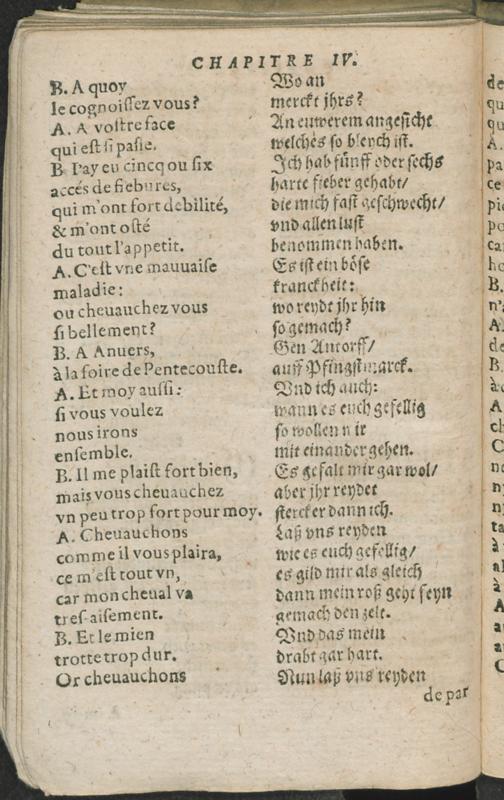 CHAPITRE IV.
B. A quoy
le cognoiſſez vous?
A. A voſtre face
qui eſt ſi paſle.
B. I'ay eu cincq ou ſix
accés de fiebures,
qui m'ont fort debilité,
& m'ont oſté
du tout l'appetit.
A. C'eſt vne mauuaiſe
maladie:
ou cheuauchez vous
ſi bellement?
B. A Anuers,
à la foire de Pentecouſte.
A. Et moy auſſi:
ſi vous voulez
nous irons
enſemble.
B. Il me plaiſt fort bien,
mais vous cheuauchez
vn peu trop fort pour moy.
A. Cheuauchons
comme il vous plaira,
ce m'eſt tout vn,
car mon cheual va
treſ-aiſement.
B. Et le mien
trotte trop dur.
Or cheuauchons
Wo an
merckt jhrs?
An euwerem angeſicht
welches ſo bleych iſt.
Ich hab fünff oder ſechs
harte fieber gehabt/
die mich faſt geſchwecht/
vnd allen luſt
benommen haben.
Es iſt ein böſe
kranckheit:
wo reydt jhr hin
ſo gemach?
Gen Antorff/
auff Pfingſtmarck.
Vnd ich auch:
wann es euch gefellig
ſo wollen wir
mit einander gehen.
Es gefalt mir gar wol/
aber jhr reydet
ſtercker dann ich.
Laß vns reyden
wie es euch gefellig/
es gild mir als gleich
dann mein roß geht ſeyn
gemach den zelt.
Vnd das mein
drabt gar hart.
Nun laß vns reyden
de par